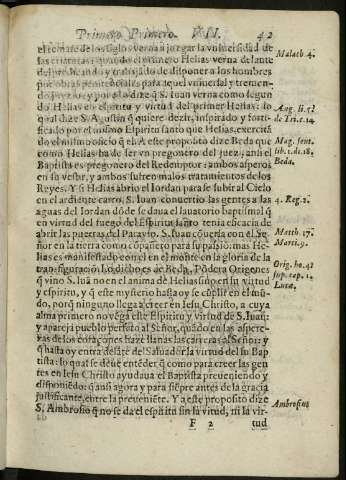 Primero Primero. VII. 42
el remate de los siglos vernan a juzgar la vniuersidad de
las criaturas: quando el mismo Helias verna delante
del predicando y trabajādo de disponer a los hombres
por obras penitēciales para aquel vniuersal y tremen-
do juyzio, y por esso dize q̄ S. Iuan verna como segun
do Helias en espiritu y virtud del primer Helias: lo
qual dize S. Agustin q̄ quiere dezir, inspirado y forti-
ficado por el mismo Espiritu santo que Helias, exercitā
do el mismo oficio q̄ el. A este proposito dize Beda que
como Helias ha de ser vn pregonero del juez, ansi el
Baptista es pregonero del Redemptor: y ambos asperos
en su vestir, y ambos sufren malos tratamientos de los
Reyes. Y si Helias abrio el Iordan para se subir al Cielo
en el ardiente carro, S. Iuan conuertio las gentes a las
aguas del Iordan dōde se daua el lauatorio baptismal q̄
en virtud del fuego del Espiritu santo tenia eficacia de
abrir las puertas del Parayso. S. Iuan cōuersa con el Se
ñor en la tierra como cōpañero para su passiō: mas He-
lias es manifestado con el en el monte en la gloria de la
transfiguraciō. Lo dicho es de Beda. Pōdera Origenes
q̄ vino S. Iuā no en el anima de Helias sino en su virtud
y espiritu, y q̄ este mysterio hasta oy se cūple en el mū-
do, porq̄ ninguno llega a creer en Iesu Christo, a cuya
alma primero no vēga este Espiritu y virtud de S. Iuan:
y apareja pueblo perfeto al Señor, quādo en las aspere-
zas de los coraçones haze llanas las carreras al Señor: y
q̄ hasta oy entra delāte del Saluador la virtud del su Bap
tista: lo qual se deue entēder q̄ como para creer las gen
tes en Iesu Christo ayudaua el Baptista preueniendo y
disponiēdo: q̄ ansi agora y para siēpre antes de la gracia
justificante, entre la preueniēte. Y a este proposito dize
S. Ambrosio q̄ no se da el espiritu sin la virtud, ni la vir-
F 2 tud
Malach. 4.
Aug. li. 5.
de Tri. c. 14
Mag. sent.
Beda.
4. Reg. 2.
Matth. 17.
Marci. 9.
Orig. ho. 4.
sup. cap. 1.
Lucæ.
Ambrosius